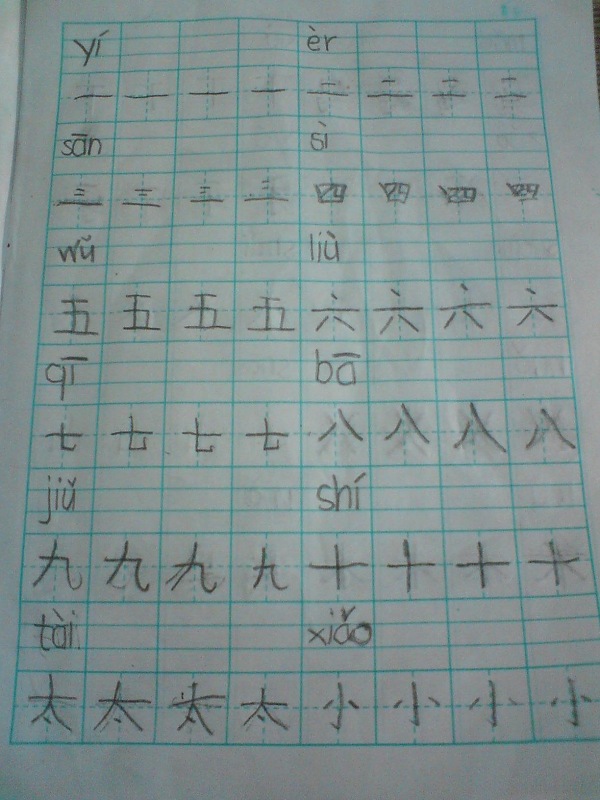 yí èr
一 一 一 一 二 二 二 二
sān sì
三 三 三 三 四 四 四 四
wǔ liù
五 五 五 五 六 六 六 六
qī bā
七 七 七 七 八 八 八 八
jiǔ shí
九 九 九 九 十 十 十 十
tài xiǎo
太 太 太 太 小 小 小 小